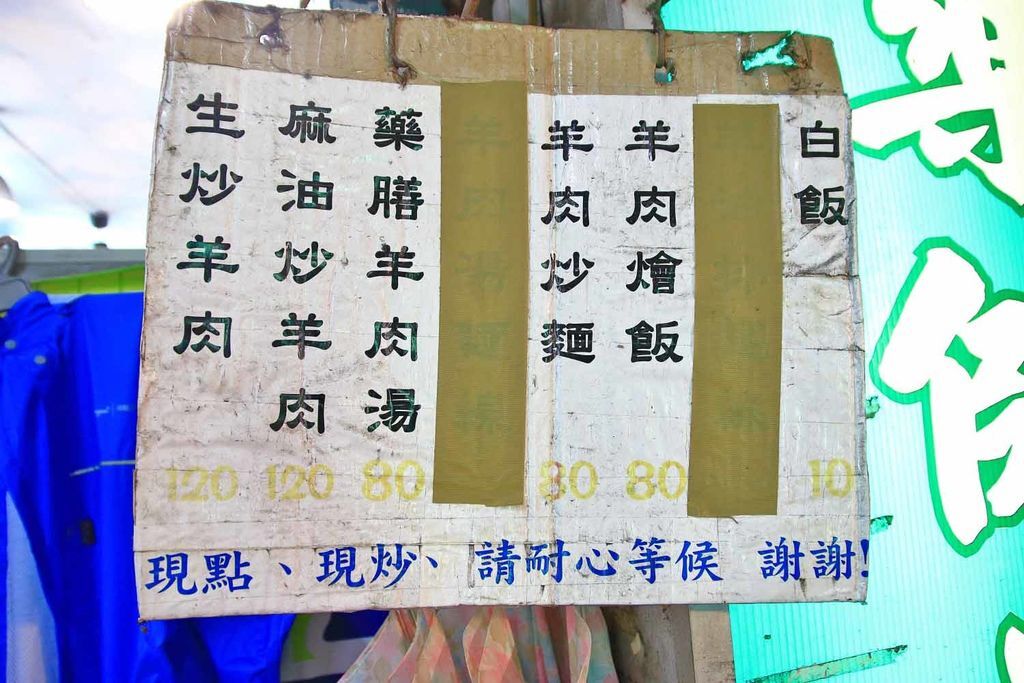 生炒羊肉 120
麻油炒羊肉 120
藥膳羊肉湯 80
羊肉炒麵 80
羊肉燴飯 80
白飯 10
現點、現炒、請耐心等候 謝謝!